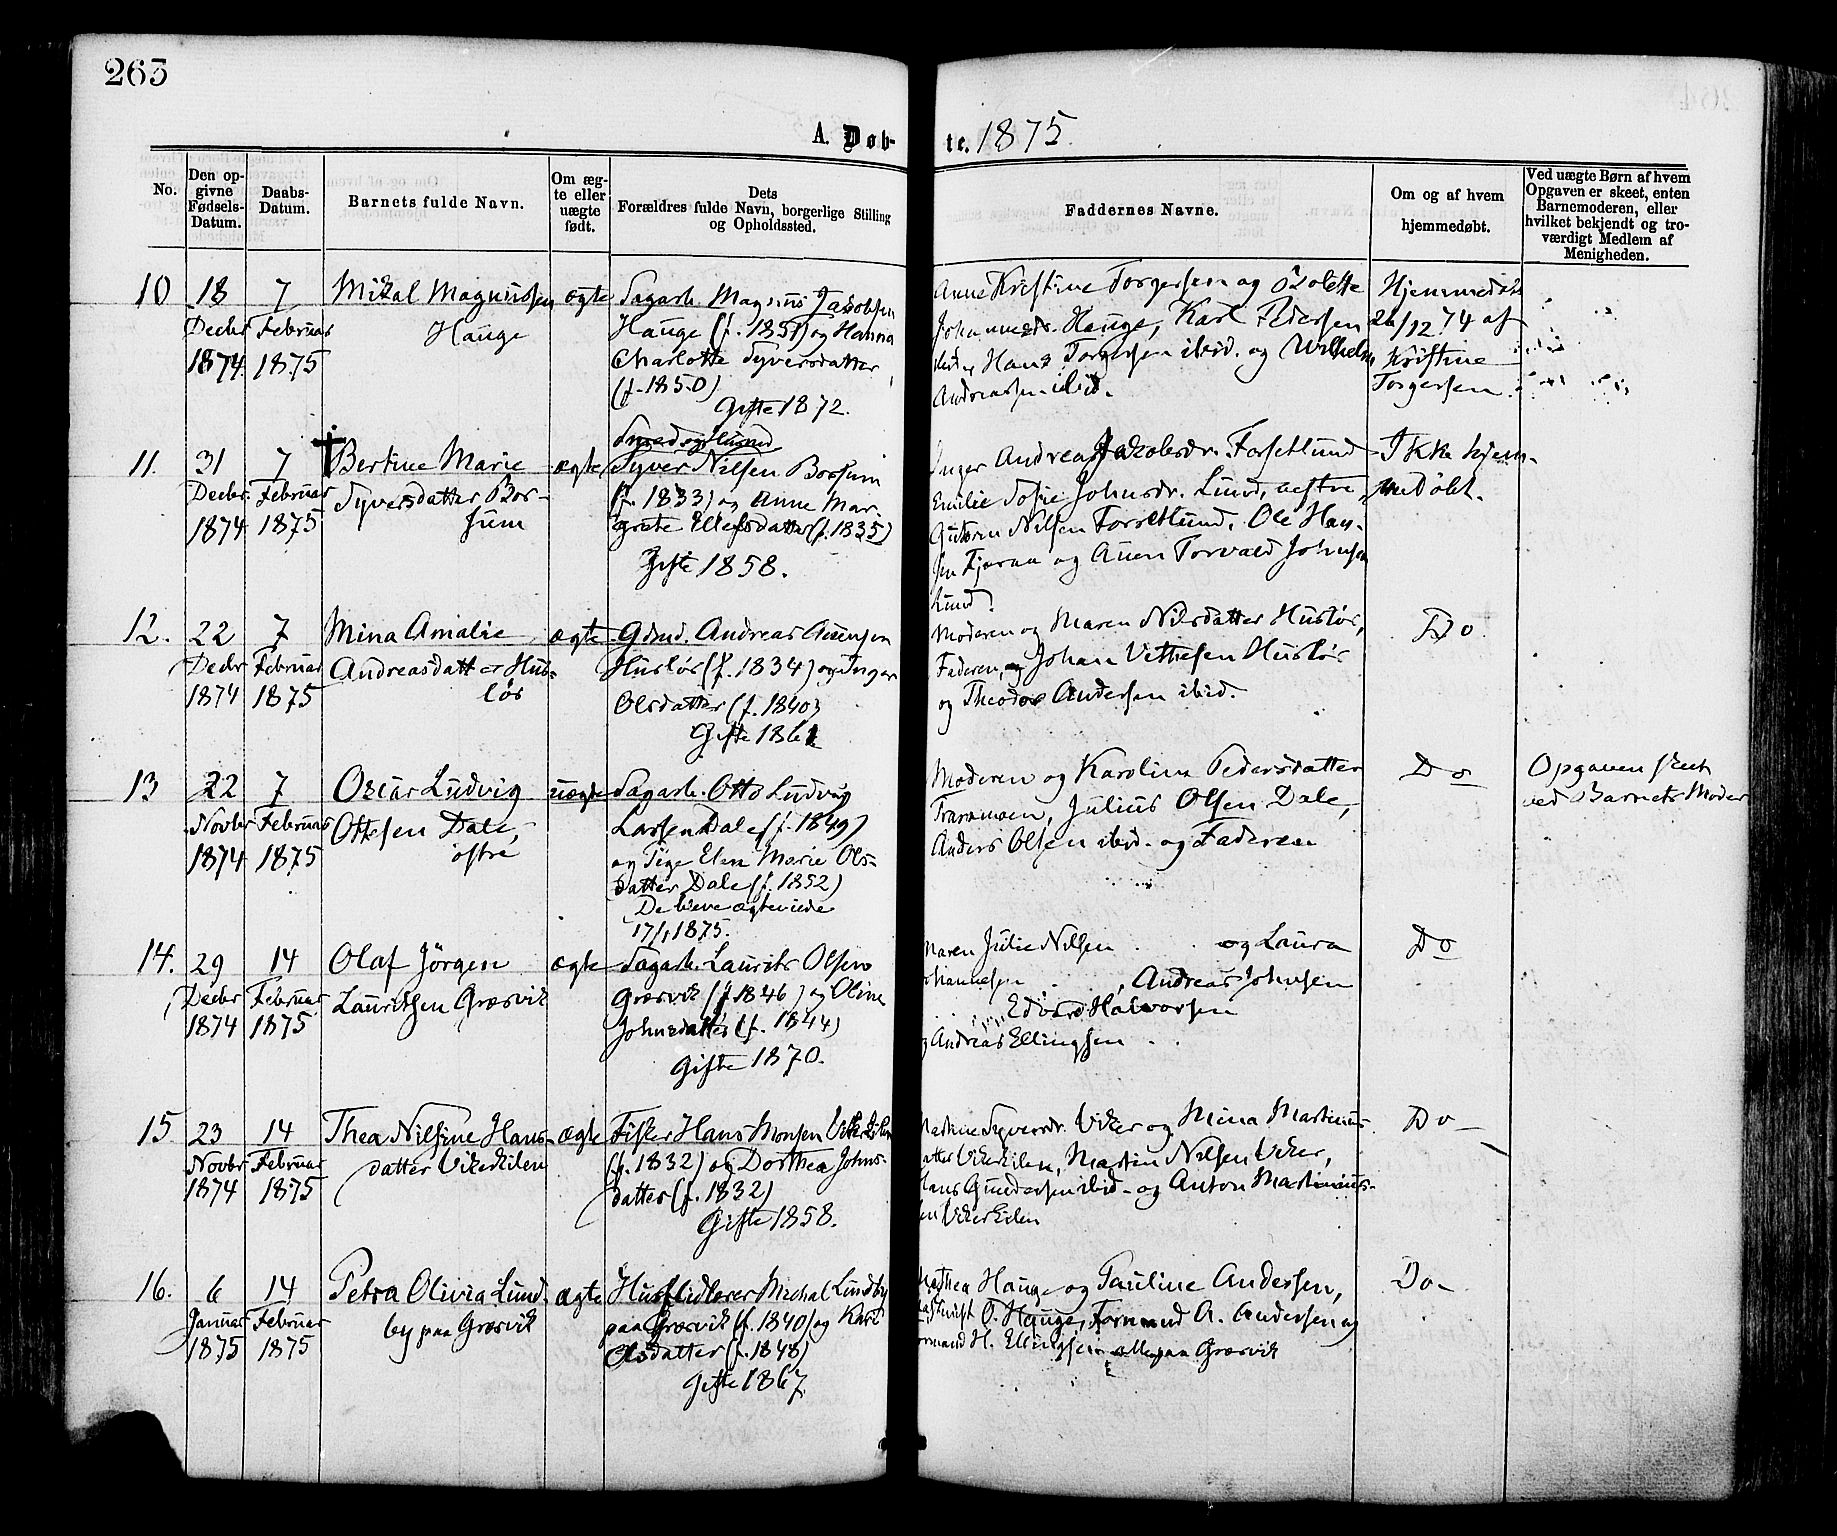 265
A. Døb-
te. 1875.
No.
Den op-
givne
Fødsels-
Datum.
Daabs-
Datum.
Barnets fulde Navn.
Om æg-
te eller
uægte
født.
Dets
Forældres fulde Navn, borgerlige Stilling
og Opholdssted.
Faddernes Navne.
Om og af hvem
hjemmedøbt.
Ved uægte Børn af hvem
Opgaven er skeet, enten
Barnemoderen, eller
hvilket bekjendt og tro-
værdigt Medlem af
Menigheden.
10
18
Decbr
1874.
7
Februar
1875
Mikal Magnussen
Hauge
ægte
Sagarb. Magnus Jacobsen
Hauge (f. 1851) og Hanna
Charlotte Syversdatter
(f. 1850)
Gifte 1872.
Anne Kristine Torgersen og Bolette
Johannesdr. Hauge, Karl Pedersen
ibid., Hans Torgersen ibid. og Wilhelm
Andreassen ibid.
Hjemmedøbt
26/12 74 af
Kristine
Torgersen.
11.
31
Decbr
1874
7
Februar
1875
† Bertine Marie
Syversdatter Bos-
sum
ægte
Smed og Husmd
Syver Nilsen Bossum
(f. 1833) og Anne Mar-
grete Ellefsdatter (f. 1835)
Gifte 1858.
Inger Andrea Jakobsdr. Forsetlund
Emilie Sofie Johnsdr. Lund, østre,
Guttorm Nilsen Forsetlund, Ole Han-
sen Fjeraa og Auen Torvald Johnsen
Lund.
Ikke hjem-
medøbt.
12.
22
Decbr
1874
7
Februar
1875
Mina Amalie
Andreasdatter Hus-
løs
ægte
Gdmd. Andreas Auensen
Husløs (f. 1834) og Inger
Olsdatter (f. 1840)
Gifte 1861
Moderen og Maren Nilsdatter Husløs,
Faderen, og Johan Vethesen Husløs
og Theodor Andersen ibid.
Do.
13
22
Novbr
1874
7
Februar
1875
Oscar Ludvig
Ottesen Dale,
østre
uægte
Sagarb. Otto Ludvig
Larsen Dale (f. 1849)
og Pige Elen Marie Ols-
datter Dale (f. 1852)
De bleve ægteviede
17/1 1875.
Moderen og Karoline Pedersdatter
Traramoen, Julius Olsen Dale,
Anders Olsen ibid. og Faderen
Do
Opgaven skeet
ved Barnets Moder
14.
29
Decbr
1874
14
Februar
1875
Olaf Jörgen
Lauritsen Græsvik
ægte
Sagarb. Laurits Olsen
Græsvik (f. 1846) og Oline
Johnsdatter (f. 1844)
Gifte 1870.
Maren Julie Nilsen og Laura
Johannesen, Andreas Johnsen
Edvard Halvorsen
og Andreas Ellingsen
Do
15.
23
Novbr
1874
14
Februar
1875
Thea Nilsine Hans-
datter Vikerkilen
ægte
Fisker Hans Monsen Vikerkilen
(f. 1832) og Dorthea Johns-
datter (f. 1832)
Gifte 1858.
Martine Syversdr. Viker og Mina Martinus-
datter Vikerkilen, Martin Nilsen Viker,
Hans Gundersen ibid. og Anton Martinius-
sen Vikerkilen
Do
16.
6
Januar
1875
14
Februar
1875
Petra Olivia Lund-
by paa Græsvik
ægte
Husflidlærer Michal Lundby
paa Græsvik (f. 1840) og Kari
Olsdatter (f. 1848)
Gifte 1867.
Mathea Hauge og Pauline Andersen,
O. Hauge, Formand A. Andersen og
Formand H. Ellingsen alle paa Græsvik
Do